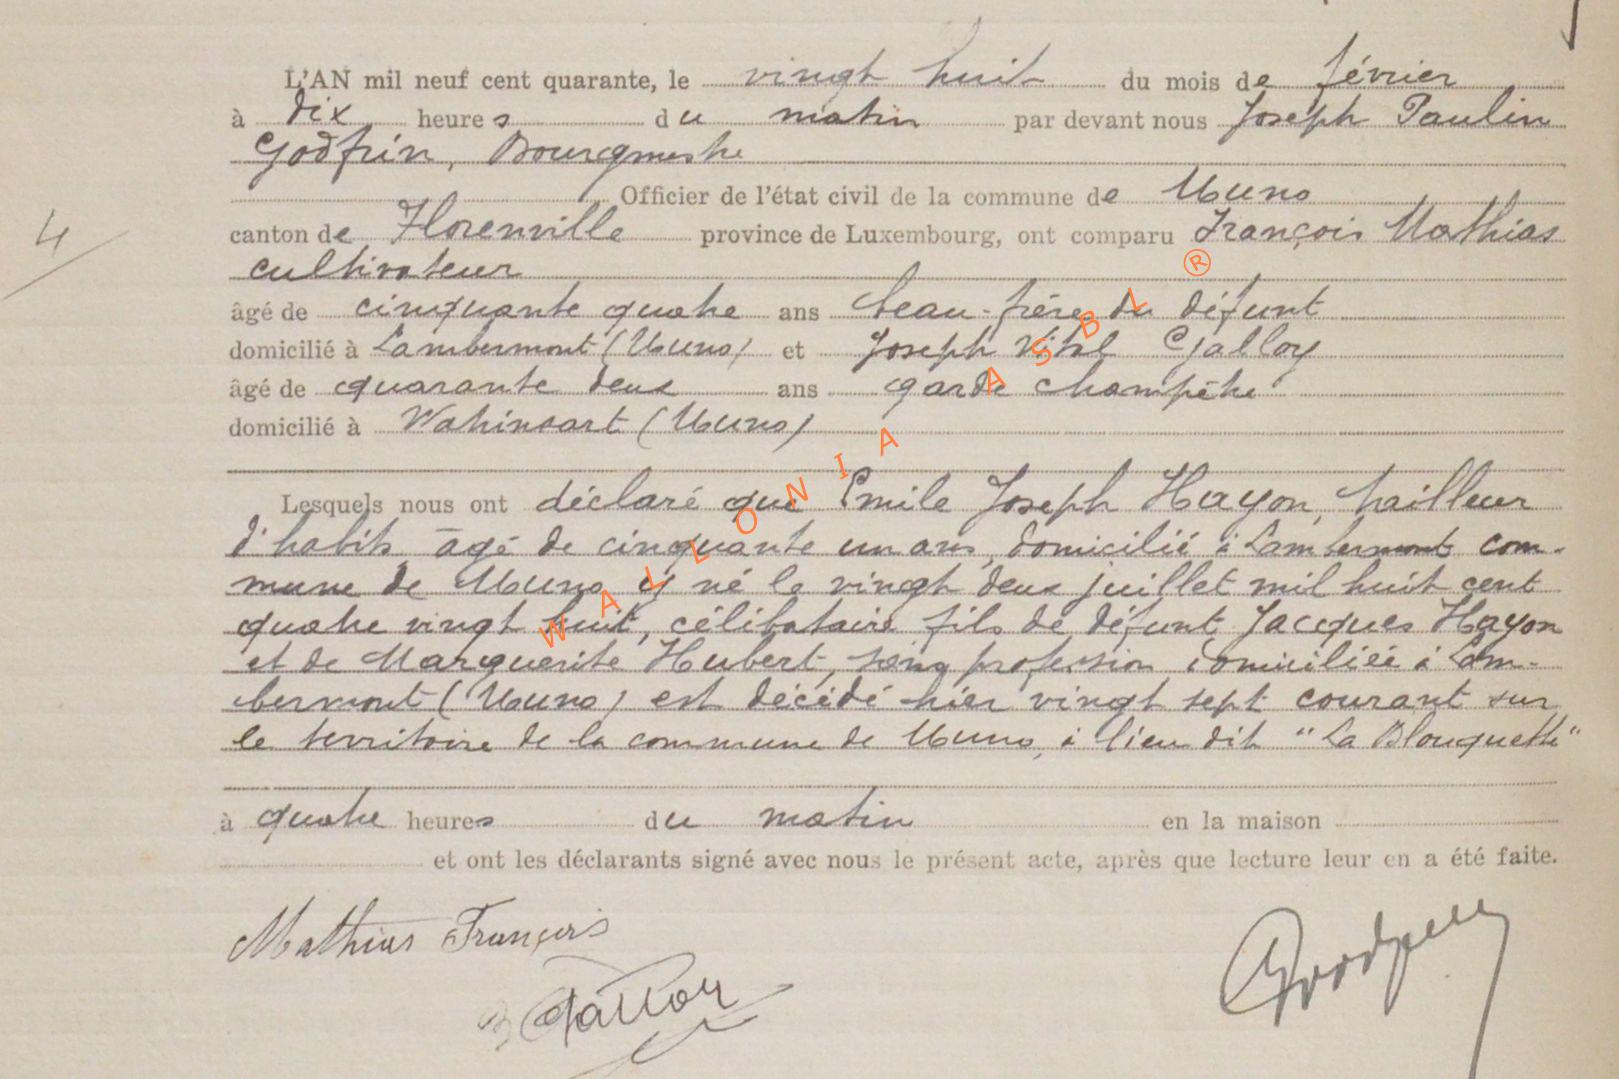 L'AN mil neuf cent quarante, le vingt huit du mois de février
à dix heures du matin par devant nous Joseph Paulin
Godfrin, Bourgmestre
Officier de l'état civil de la commune de Muno
4
canton de Florenville province de Luxembourg, ont comparu François Mathias
cultivateur
âgé de cinquante quatre ans beau-frère du défunt
domicilié à Lambermont (Muno) et Joseph Vital Galloy
âgé de quarante deux ans garde champêtre
domicilié à Watrinsart (Muno)
Lesquels nous ont déclaré que Emile Joseph Hayon, tailleur
d'habits âgé de cinquante un ans, domicilié à Lambermont com-
mune de Muno y né le vingt deux juillet mil huit cent
quatre vingt huit, célibataire fils de défunt Jacques Hayon
et de Marguerite Hubert, sans profession domiciliée à Lam-
bermont (Muno) est décédé hier vingt sept courant sur
le territoire de la commune de Muno, à lieu dit "La Blouquette"
à quatre heures du matin en la maison
et ont les déclarants signé avec nous le présent acte, après que lecture leur en a été faite.
Mathias François
Galloy
Godfrin
WALLONIA ASBL ®